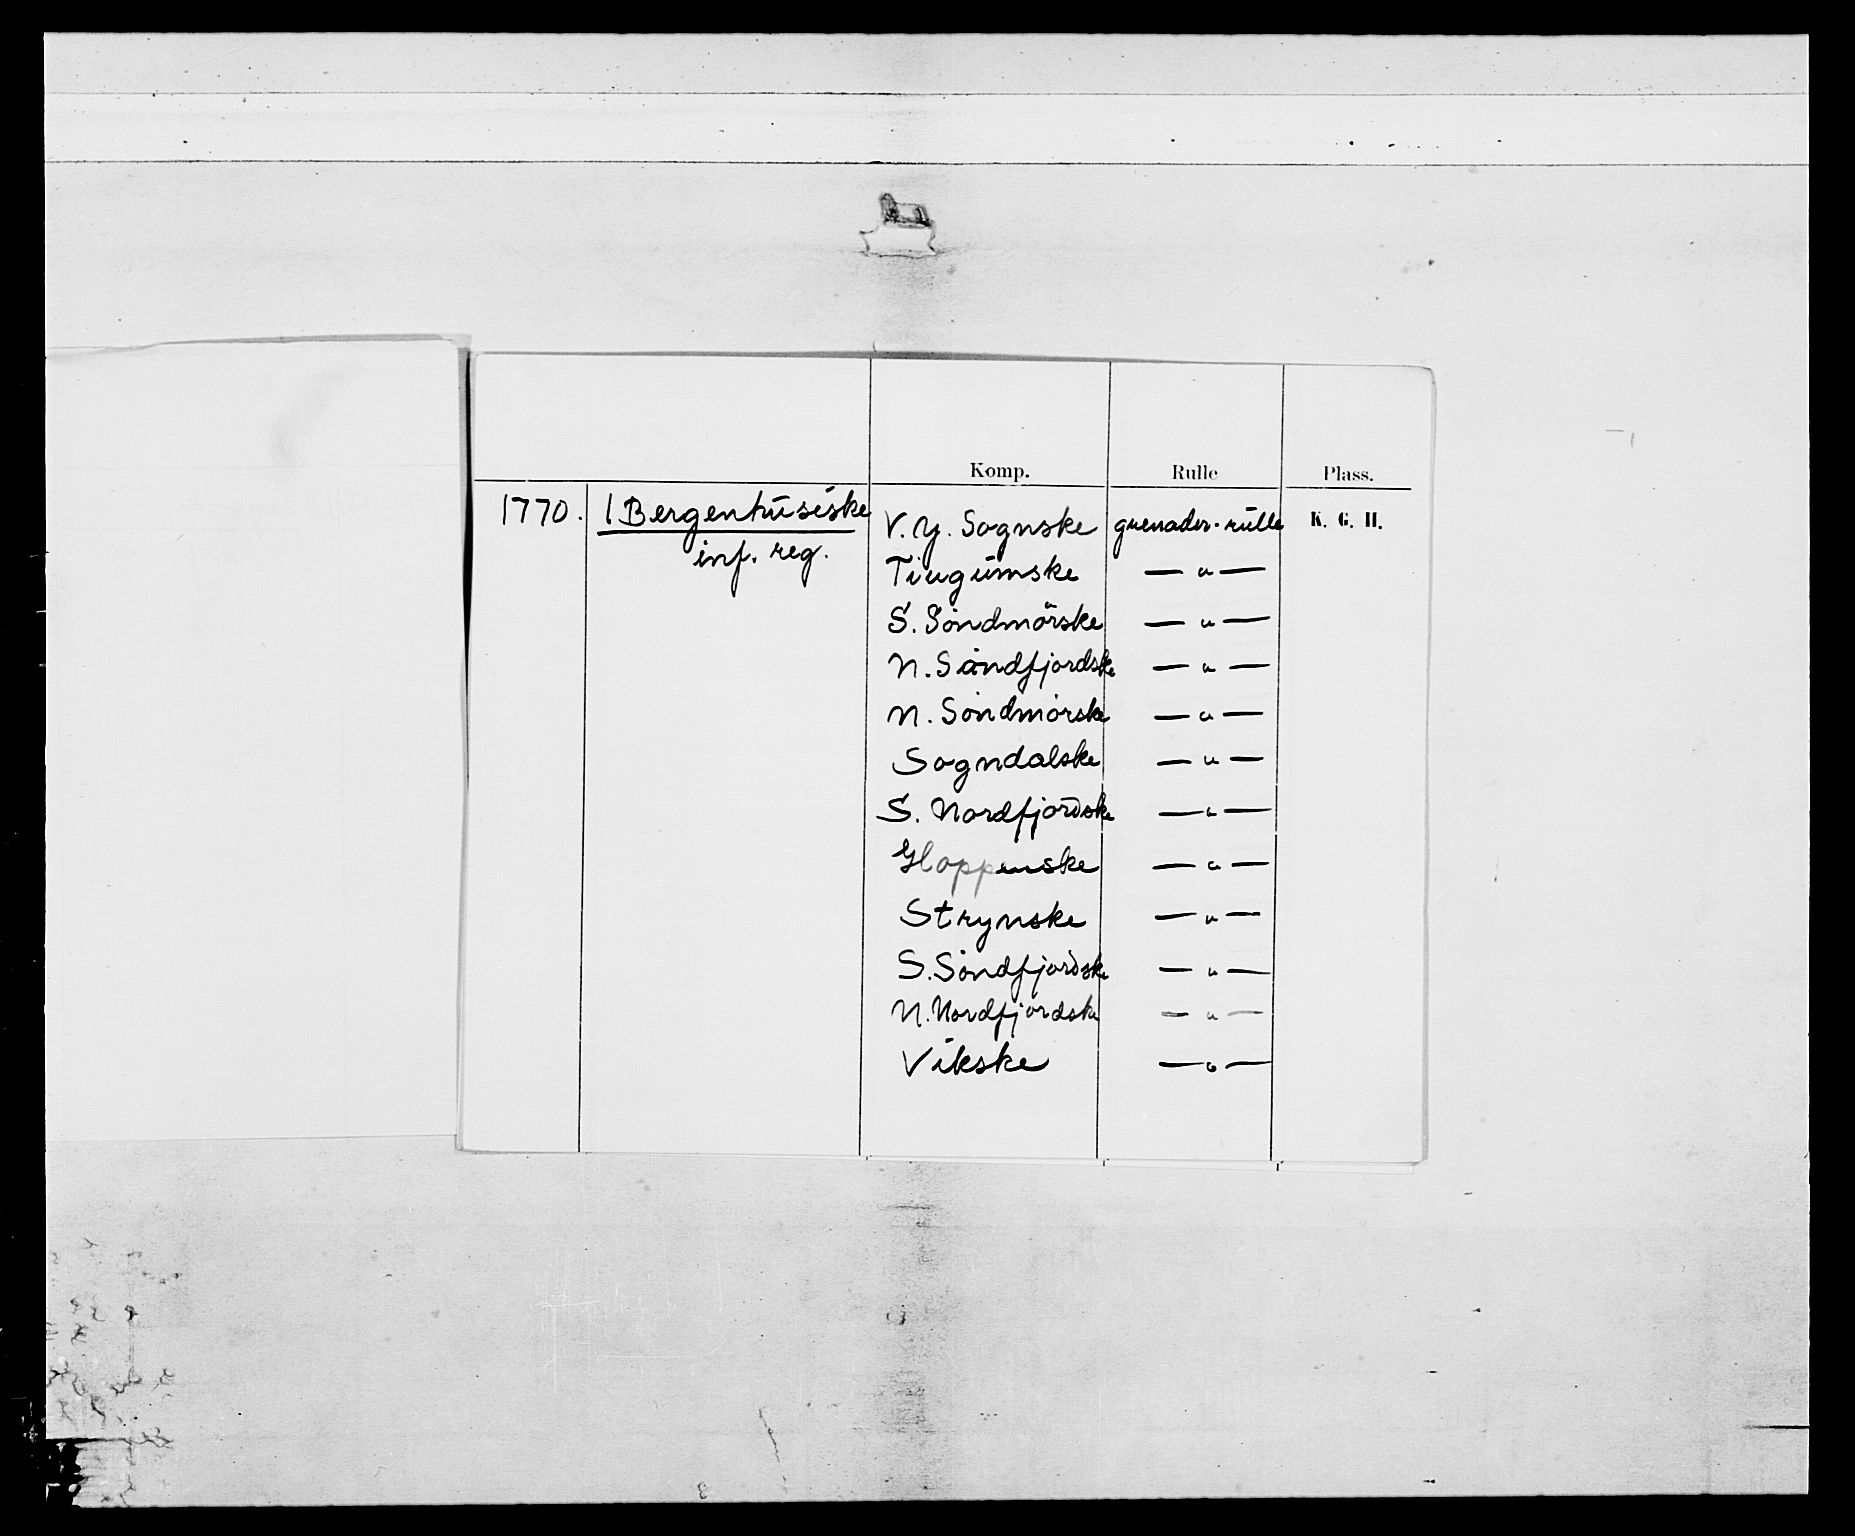 Komp. Rulle Plass.
1770. 1 Bergenhusiske V. Y. Sognske grenader-rulle K. G. H.
inf. reg.
Tiugumske — " —
S. Söndmörske — " —
N. Söndfjordske — " —
N. Söndmörske — " —
Sogndalske — " —
S. Nordfjordske — " —
Gloppenske — " —
Strynske — " —
S. Söndfjordske — " —
N. Nordfjordske — " —
Vikske — " —